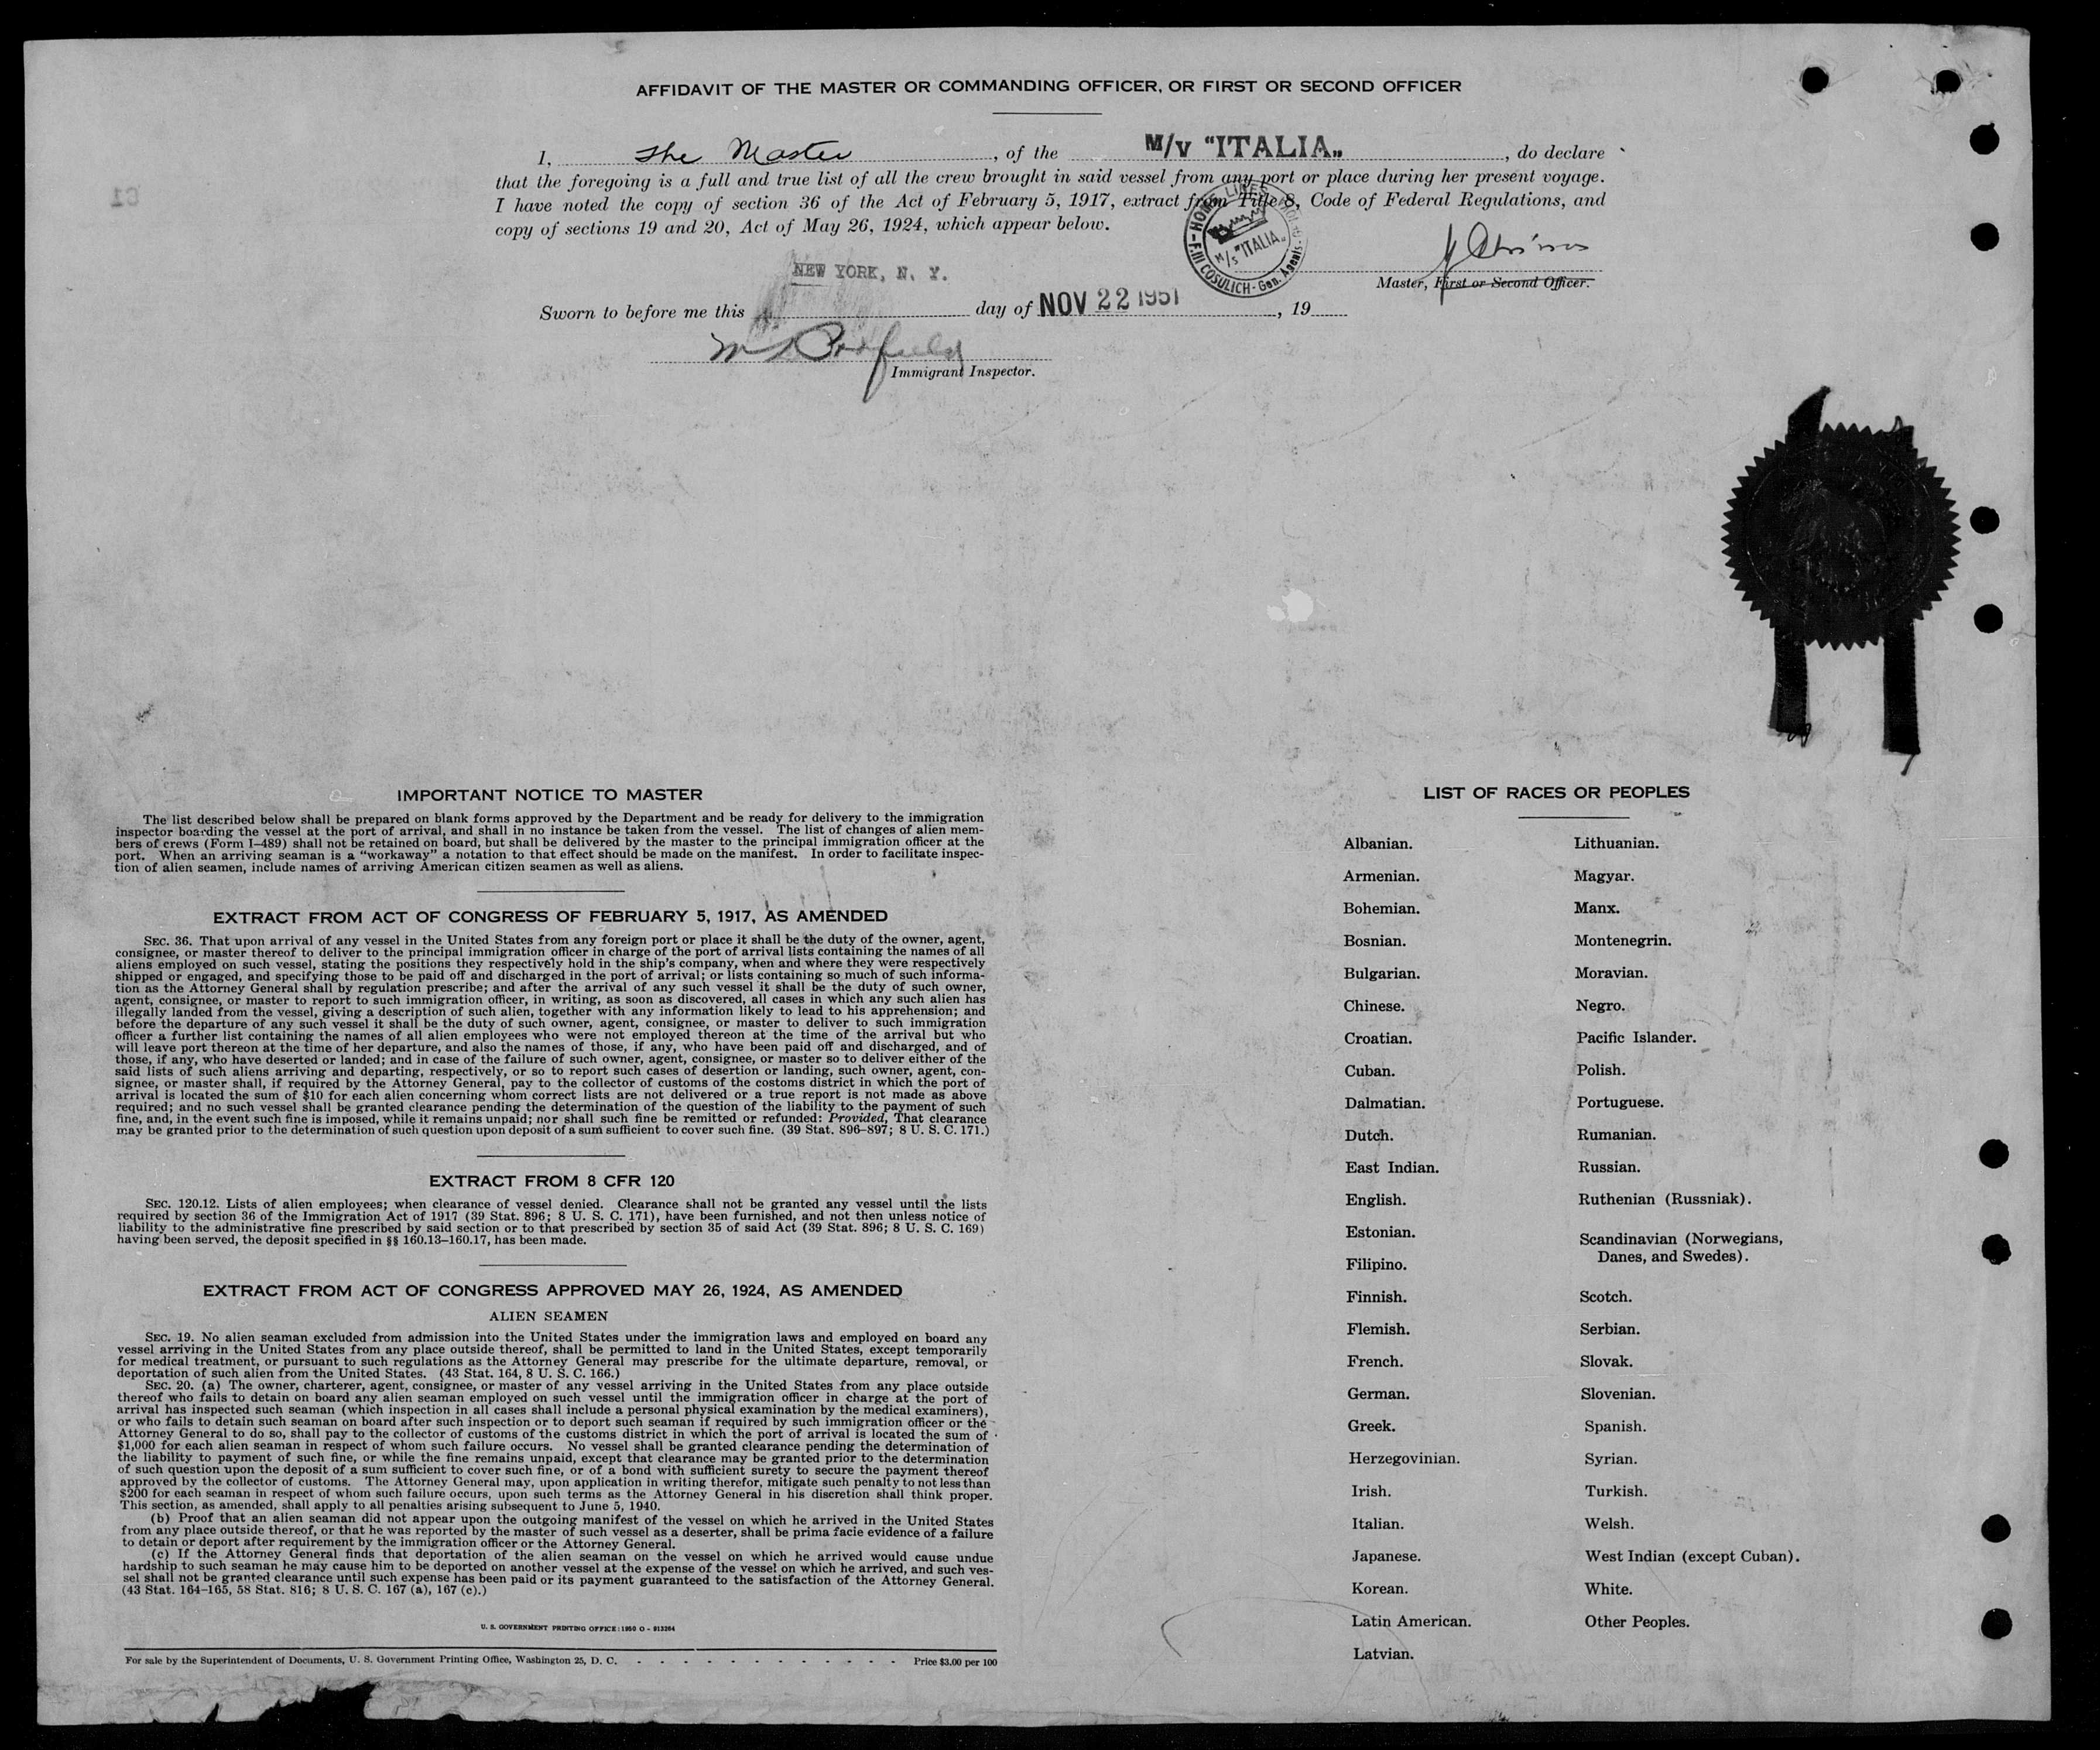 AFFIDAVIT OF THE MASTER OR COMMANDING OFFICER, OR FIRST OR SECOND OFFICER
I, The Master, of the M/V "ITALIA„, do declare
that the foregoing is a full and true list of all the crew brought in said vessel from any port or place during her present voyage.
I have noted the copy of section 36 of the Act of February 5, 1917, extract from Title 8, Code of Federal Regulations, and
copy of sections 19 and 20, Act of May 26, 1924, which appear below.
HOME LINES
M/S "ITALIA„
F.lli COSULICH - Gen. Agents
NEW YORK, N. Y.
Master, First or Second Officer.
Sworn to before me this day of NOV 22 1951, 19
Immigrant Inspector.
IMPORTANT NOTICE TO MASTER
The list described below shall be prepared on blank forms approved by the Department and be ready for delivery to the immigration
inspector boarding the vessel at the port of arrival, and shall in no instance be taken from the vessel. The list of changes of alien mem-
bers of crews (Form I–489) shall not be retained on board, but shall be delivered by the master to the principal immigration officer at the
port. When an arriving seaman is a "workaway" a notation to that effect should be made on the manifest. In order to facilitate inspec-
tion of alien seamen, include names of arriving American citizen seamen as well as aliens.
EXTRACT FROM ACT OF CONGRESS OF FEBRUARY 5, 1917, AS AMENDED
SEC. 36. That upon arrival of any vessel in the United States from any foreign port or place it shall be the duty of the owner, agent,
consignee, or master thereof to deliver to the principal immigration officer in charge of the port of arrival lists containing the names of all
aliens employed on such vessel, stating the positions they respectively hold in the ship's company, when and where they were respectively
shipped or engaged, and specifying those to be paid off and discharged in the port of arrival; or lists containing so much of such informa-
tion as the Attorney General shall by regulation prescribe; and after the arrival of any such vessel it shall be the duty of such owner,
agent, consignee, or master to report to such immigration officer, in writing, as soon as discovered, all cases in which any such alien has
illegally landed from the vessel, giving a description of such alien, together with any information likely to lead to his apprehension; and
before the departure of any such vessel it shall be the duty of such owner, agent, consignee, or master to deliver to such immigration
officer a further list containing the names of all alien employees who were not employed thereon at the time of the arrival but who
will leave port thereon at the time of her departure, and also the names of those, if any, who have been paid off and discharged, and of
those, if any, who have deserted or landed; and in case of the failure of such owner, agent, consignee, or master so to deliver either of the
said lists of such aliens arriving and departing, respectively, or so to report such cases of desertion or landing, such owner, agent, con-
signee, or master shall, if required by the Attorney General, pay to the collector of customs of the costoms district in which the port of
arrival is located the sum of $10 for each alien concerning whom correct lists are not delivered or a true report is not made as above
required; and no such vessel shall be granted clearance pending the determination of the question of the liability to the payment of such
fine, and, in the event such fine is imposed, while it remains unpaid; nor shall such fine be remitted or refunded: Provided, That clearance
may be granted prior to the determination of such question upon deposit of a sum sufficient to cover such fine. (39 Stat. 896–897; 8 U. S. C. 171.)
EXTRACT FROM 8 CFR 120
SEC. 120.12. Lists of alien employees; when clearance of vessel denied. Clearance shall not be granted any vessel until the lists
required by section 36 of the Immigration Act of 1917 (39 Stat. 896; 8 U. S. C. 171), have been furnished, and not then unless notice of
liability to the administrative fine prescribed by said section or to that prescribed by section 35 of said Act (39 Stat. 896; 8 U. S. C. 169)
having been served, the deposit specified in §§ 160.13–160.17, has been made.
EXTRACT FROM ACT OF CONGRESS APPROVED MAY 26, 1924, AS AMENDED
ALIEN SEAMEN
SEC. 19. No alien seaman excluded from admission into the United States under the immigration laws and employed on board any
vessel arriving in the United States from any place outside thereof, shall be permitted to land in the United States, except temporarily
for medical treatment, or pursuant to such regulations as the Attorney General may prescribe for the ultimate departure, removal, or
deportation of such alien from the United States. (43 Stat. 164, 8 U. S. C. 166.)
SEC. 20. (a) The owner, charterer, agent, consignee, or master of any vessel arriving in the United States from any place outside
thereof who fails to detain on board any alien seaman employed on such vessel until the immigration officer in charge at the port of
arrival has inspected such seaman (which inspection in all cases shall include a personal physical examination by the medical examiners),
or who fails to detain such seaman on board after such inspection or to deport such seaman if required by such immigration officer or the
Attorney General to do so, shall pay to the collector of customs of the customs district in which the port of arrival is located the sum of
$1,000 for each alien seaman in respect of whom such failure occurs. No vessel shall be granted clearance pending the determination of
the liability to payment of such fine, or while the fine remains unpaid, except that clearance may be granted prior to the determination
of such question upon the deposit of a sum sufficient to cover such fine, or of a bond with sufficient surety to secure the payment thereof
approved by the collector of customs. The Attorney General may, upon application in writing therefor, mitigate such penalty to not less than
$200 for each seaman in respect of whom such failure occurs, upon such terms as the Attorney General in his discretion shall think proper.
This section, as amended, shall apply to all penalties arising subsequent to June 5, 1940.
(b) Proof that an alien seaman did not appear upon the outgoing manifest of the vessel on which he arrived in the United States
from any place outside thereof, or that he was reported by the master of such vessel as a deserter, shall be prima facie evidence of a failure
to detain or deport after requirement by the immigration officer or the Attorney General.
(c) If the Attorney General finds that deportation of the alien seaman on the vessel on which he arrived would cause undue
hardship to such seaman he may cause him to be deported on another vessel at the expense of the vessel on which he arrived, and such ves-
sel shall not be granted clearance until such expense has been paid or its payment guaranteed to the satisfaction of the Attorney General.
(43 Stat. 164–165, 58 Stat. 816; 8 U. S. C. 167 (a), 167 (c).)
U. S. GOVERNMENT PRINTING OFFICE : 1950 O – 913264
For sale by the Superintendent of Documents, U. S. Government Printing Office, Washington 25, D. C. - - - - - - - - - - - - Price $3.00 per 100
LIST OF RACES OR PEOPLES
Albanian.
Armenian.
Bohemian.
Bosnian.
Bulgarian.
Chinese.
Croatian.
Cuban.
Dalmatian.
Dutch.
East Indian.
English.
Estonian.
Filipino.
Finnish.
Flemish.
French.
German.
Greek.
Herzegovinian.
Irish.
Italian.
Japanese.
Korean.
Latin American.
Latvian.
Lithuanian.
Magyar.
Manx.
Montenegrin.
Moravian.
Negro.
Pacific Islander.
Polish.
Portuguese.
Rumanian.
Russian.
Ruthenian (Russniak).
Scandinavian (Norwegians,
Danes, and Swedes).
Scotch.
Serbian.
Slovak.
Slovenian.
Spanish.
Syrian.
Turkish.
Welsh.
West Indian (except Cuban).
White.
Other Peoples.